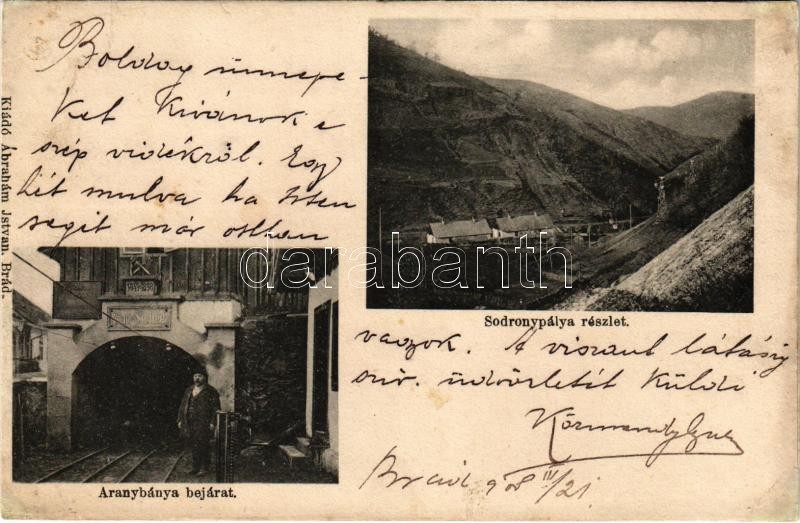 Boldog ünnepe-
ket kivánok e
szép vidékről. Egy
hét mulva ha Isten
segit már otthon
vagyok. A viszont látásig
sziv. üdvözletét küldi
Brád 908 IV/21
Sodronypálya részlet.
Aranybánya bejárat.
Kiadó Ábrahám Istvan. Brád.
darabanth.com